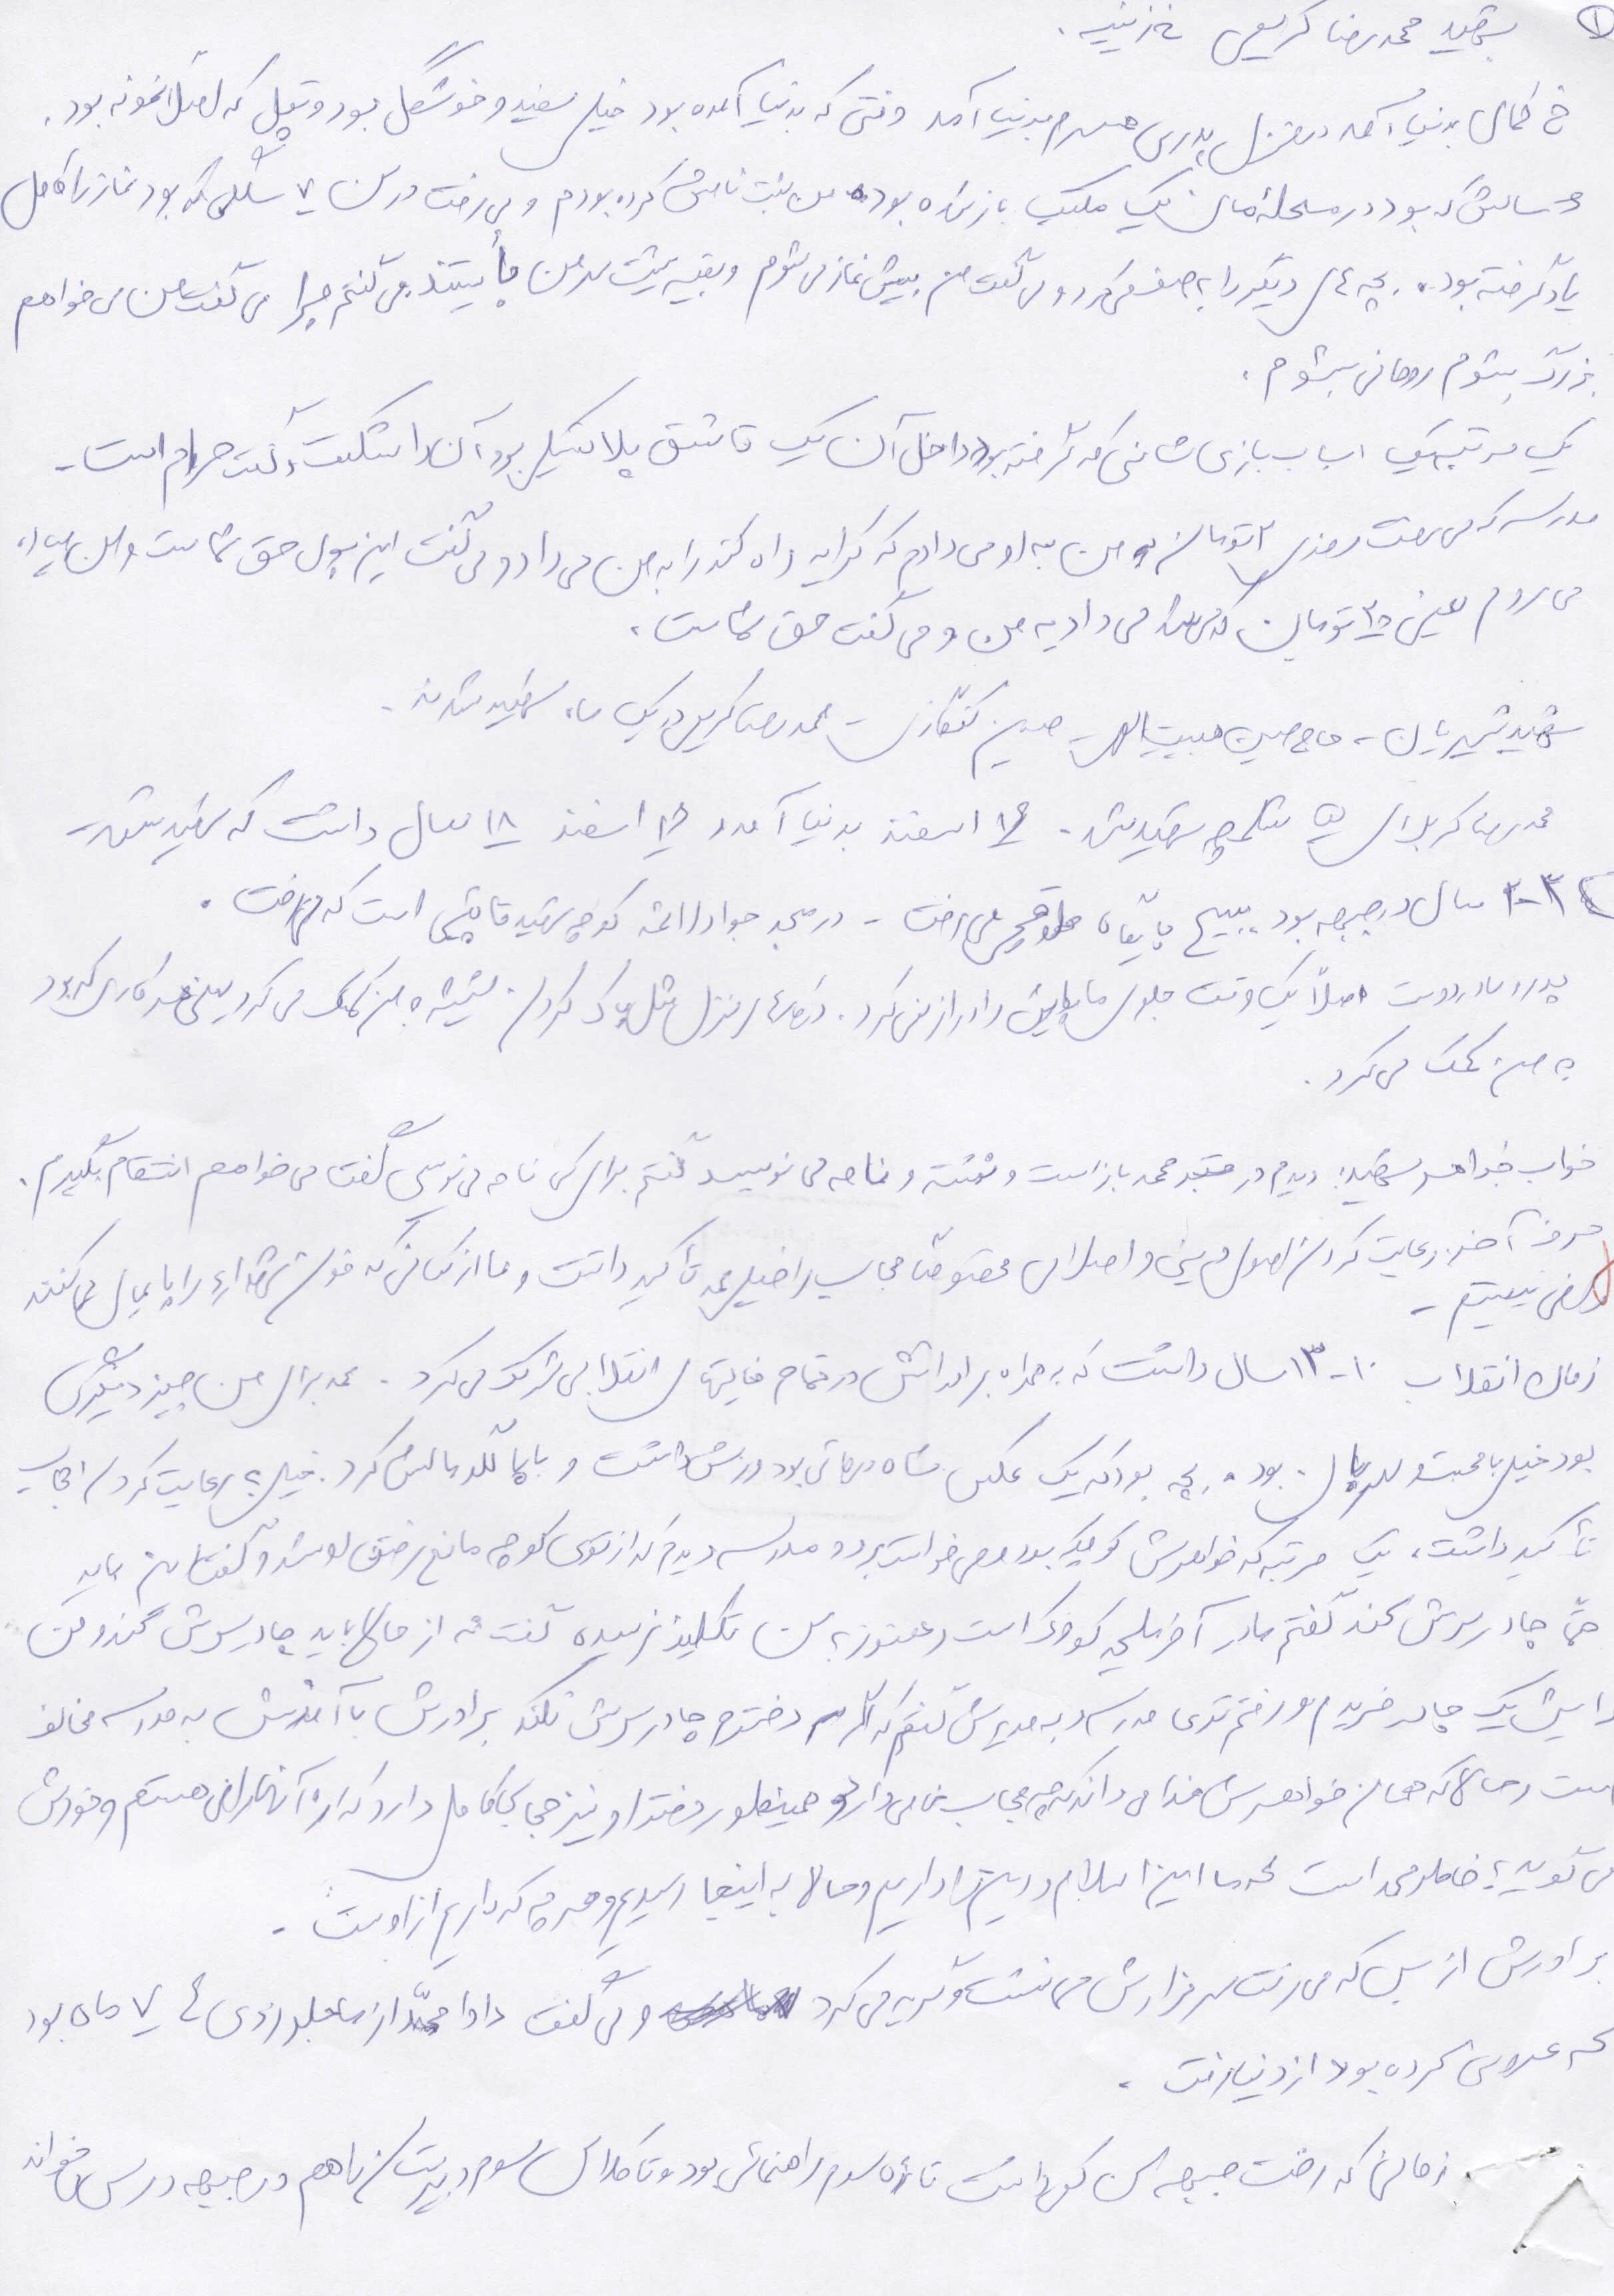 ①
شهید محمدرضا کریمی خزینه .
خ کمالی بدنیا آمد در منزل پدری همسرم بدنیا آمد وقتی که بدنیا آمده بود خیلی سفید و خوشگل بود و تپل که اصلاً نمونه بود .
سالش که بود در محله‌مان یک مکتب باز شده بود من ثبت نامش کرده بودم و می‌رفت در سن ۷ سالگی که بود نماز را کامل
یاد گرفته بود . بچه های دیگر را به صف می‌کرد و می گفت من پیش نماز می شوم و بقیه پشت سر من بایستند می گفتم چرا می گفت من می خواهم
بزرگ بشوم روحانی بشوم .
یک مرتبه یک اسباب بازی شانسی که گرفته بود داخل آن یک قاشق پلاستیکی بود آن را شکست و گفت حرام است -
مدرسه که می رفت روزی ۲ تومان من به او می دادم که کرایه راه کند را به من می داد و می گفت این پول حق شماست و من پیاده
می روم یعنی تومان می داد به من و می گفت حق شماست .
شهید شیریان - حاج حسین - حسین - محمدرضا کریمی در یک ماه شهید شدند -
محمدرضا کربلای ۵ شلمچه شهید شد - ۱۶ اسفند بدنیا آمد و ۱۶ اسفند ۱۸ سال داشت که شهید شد -
۲-۳ سال در جبهه بود بسیج پایگاه می رفت - در مسجد جوادالائمه کوچه شهید است که می رفت .
پدر و مادر دوست اصلاً یک وقت جلوی ما پایش را دراز نمی کرد . در کارهای منزل مثل پاک کردن شیشه به من کمک می کرد یعنی هر کاری که بود
به من کمک می کرد .
خواب خواهر شهید: دیدم در مسجد محمد باز است و نشسته و نامه می نویسد گفتم برای کی نامه می نویسی گفت می خواهم انتقام بگیرم .
حرف آخر: رعایت کردن اصول دینی و اسلامی مخصوصاً حجاب را خیلی محمد تأکید داشت و ما از کسانی که خون شهداء را پایمال می کنند
راضی نیستیم -
زمان انقلاب ۱۰-۱۳ سال داشت که به همراه برادرانش در تمام فعالیتهای انقلابی شرکت می کرد . محمد برای من چیز دیگری
بود خیلی با محبت و بود . بچه بود که یک عکس شاه در مانی بود ورش داشت و با پا لگدمالش کرد . خیلی به رعایت کردن حجاب
تأکید داشت ، یک مرتبه که خواهرش کوچک بود و می خواست برود مدرسه دیدم که از توی کوچه مانع رفتن او شد و گفت این باید
حتماً چادر سرش کند گفتم مادر آخر بچه کوچک است و هنوز به سن تکلیف نرسیده گفت نه از حالا باید چادر سرش کند و من
برایش یک چادر خریدم و رفتم توی مدرسه و به مدیرش گفتم که اگر دخترم چادر سرش نکند برادرش با آمدنش به مدرسه مخالف
است و حالا که همان خواهرش خدا می داند که چه حجاب نابی دارد و همینطور دختر او نیز حجابی کامل دارد که از آنها راضی هستم و خودش
می گوید به خاطر محمد است که ما این اسلام و دین را داریم و حالا به اینجا رسیدیم و هر چه که داریم از اوست -
برادرش از بس که می رفت سر مزارش می نشست و گریه می کرد و می گفت دادا محمد از ما جلو زدی که ۷ ماه بود
که عروسی کرده بود از دنیا رفت .
زمانی که رفت جبهه سن کمی داشت تازه سوم راهنمایی بود و تا کلاس سوم دبیرستان را هم در جبهه درس خواند